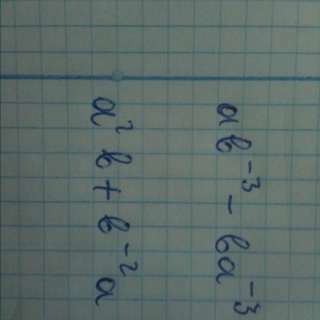 ab⁻³ - ba⁻³
a² b + b⁻² a